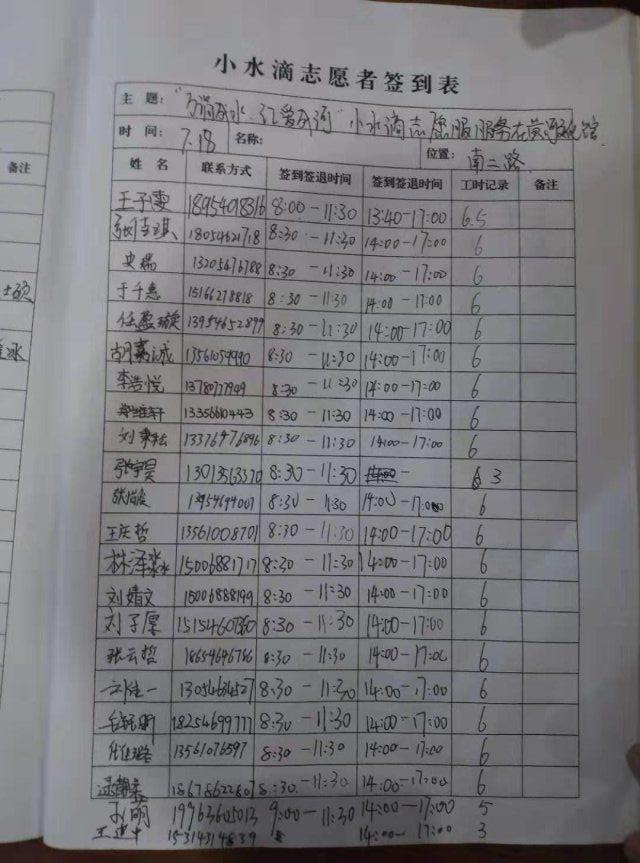 小水滴志愿者签到表
主 题: 小水滴志愿服务在黄河 馆
时 间: 7.18 名称: 位置: 南二路
备注
姓 名 联系方式 签到签退时间 签到签退时间 工时记录 备注
王子雯 18954018316 8:00-11:30 13:40-17:00 6.5
18054621718 8:30-11:30 14:00-17:00 6
史瑞 13205676788 8:30-11:30 14:00-17:00 6
于千惠 15166278818 8:30-11:30 14:00-17:00 6
任盈 13954652899 8:30-11:30 14:00-17:00 6
胡嘉诚 13561054940 8:30-11:30 14:00-17:00 6
李浩悦 13780777949 8:30-11:30 14:00-17:00 6
13356610443 8:30-11:30 14:00-17:00 6
刘秉松 13376476896 8:30-11:30 14:00-17:00 6
张宇昊 13013563370 8:30-11:30 - 3
13954694007 8:30-11:30 14:00-17:00 6
王庆哲 13561008701 8:30-11:30 14:00-17:00 6
林泽 15006881717 8:30-11:30 14:00-17:00 6
刘婧文 15006888199 8:30-11:30 14:00-17:00 6
刘子厚 15154607360 8:30-11:30 14:00-17:00 6
张云哲 18654646766 8:30-11:30 14:00-17:00 6
13054634527 8:30-11:30 14:00-17:00 6
18254699777 8:30-11:30 14:00-17:00 6
13561076597 8:30-11:30 14:00-17:00 6
18678622807 8:30-11:30 14:00-17:00 6
孙萌 19963605013 9:00-11:30 14:00-17:00 5
王建中 15314314839 14:00-17:00 3